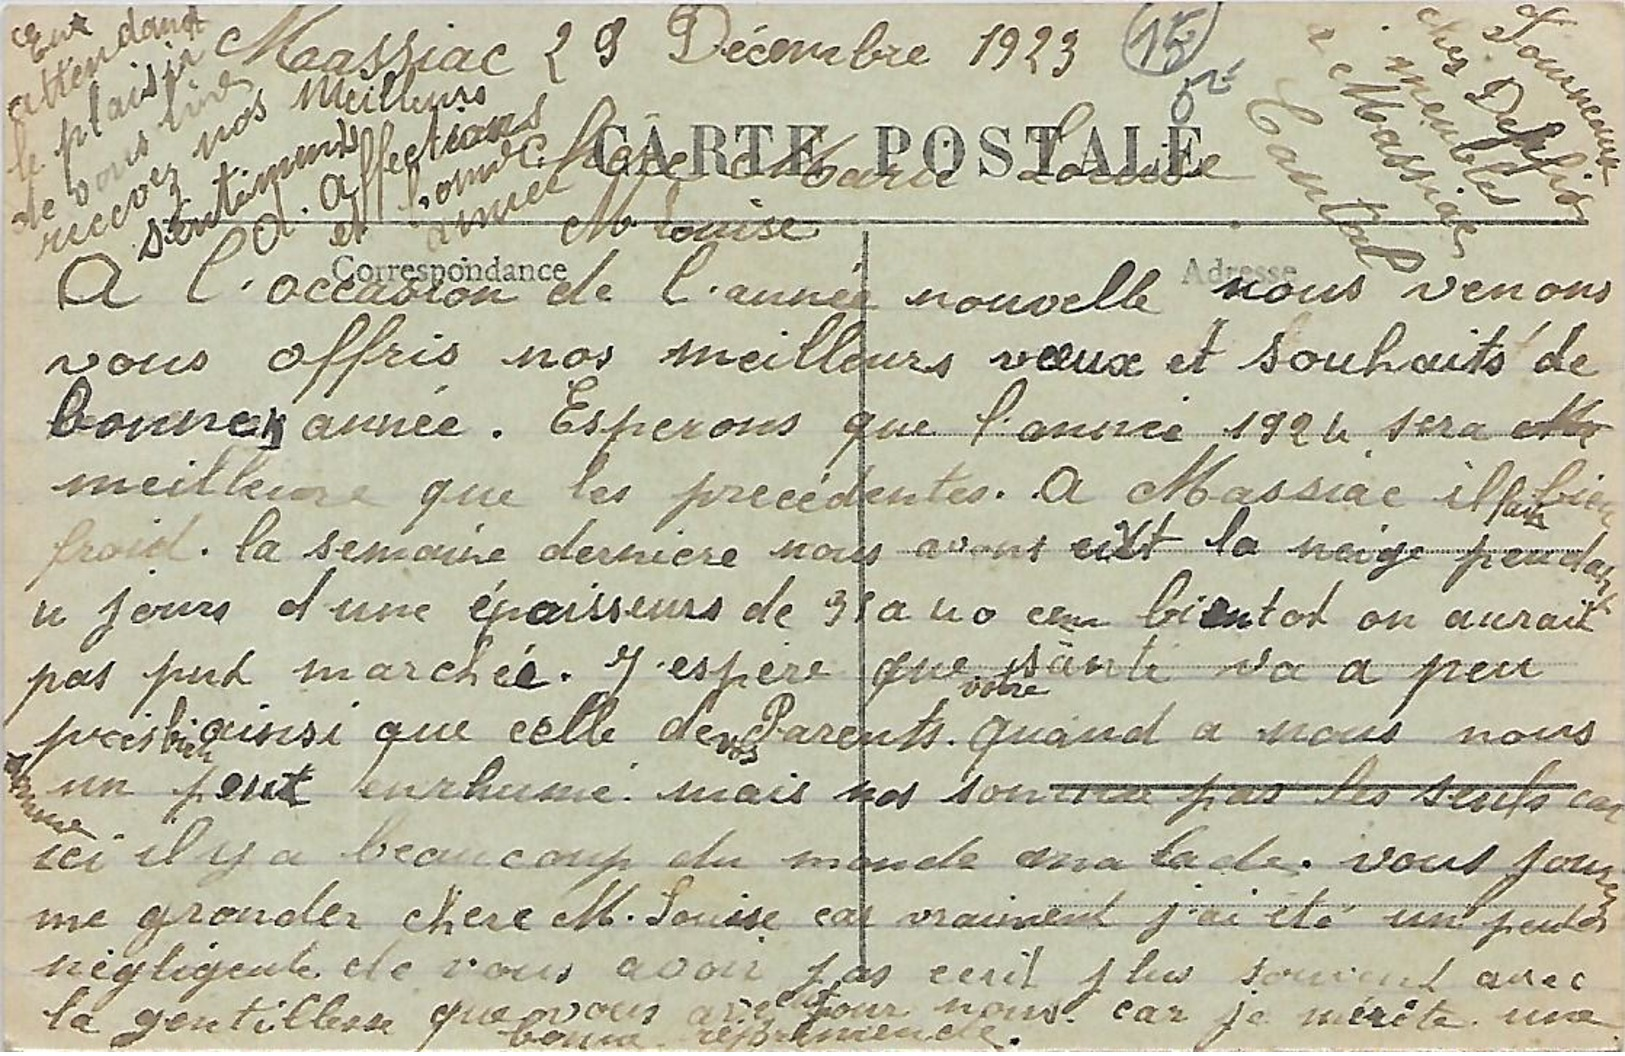 Massiac 29 Décembre 1923
15
CARTE POSTALE
Chère Marie Louise
M. Louise
Correspondance
Adresse
A l'occasion de l'année nouvelle nous venons
vous offris nos meilleurs vœux et souhaits de
bonne année. Esperons que l'année 1924 sera
meilleure que les precédentes. A Massiac il fait bien
froid. la semaine derniere nous avons eut la neige pendant
4 jours d'une épaisseurs de a 40 cm bientot on aurait
pas put marchée. J'espère que votre santé va a peu
près bien ainsi que celle de vos Parents. quand a nous nous
sommes un peut enrhumé. mais nos somme pas les seuls car
ici il y a beaucoup du monde malade. vous pouvez
me gronder chere M. Louise car vraiment j'ai été un peut
négligente de vous avoir pas ecrit plus souvent avec
la gentillesse que vous avez eut pour nous. car je mérite une
bonne réprimende.
En attendant
le plaisir
de vous lire
recevez nos meilleurs
sentiments
d'affections
et bonne
année
Tourneaux
chez Delfis
meubles
a Massiac
Cantal